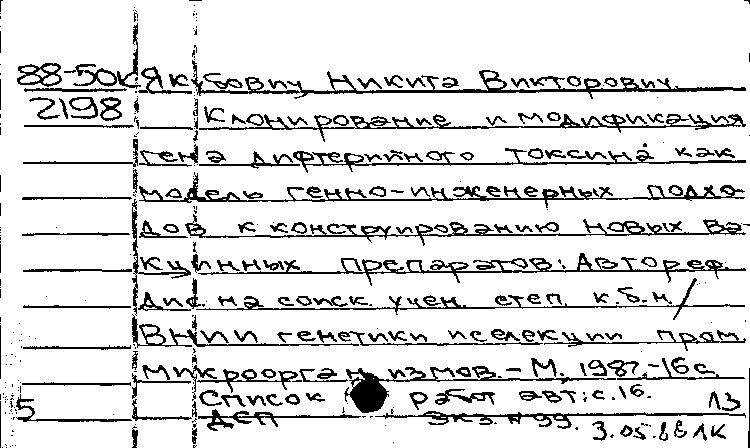 88-50к Якубович Никита Викторович.
2198 Клонирование и модификация
гена дифтерийного токсина как
модель генно-инженерных подхо-
дов к конструированию новых ва-
кцинных препаратов: Автореф.
дис. на соиск. учен. степ. к.б.н./
ВНИИ генетики и селекции пром.
микроорганизмов. - М. 1987. - 16 с.
Список работ авт.: с. 16.
5 ДСП Экз. N 99.
3.05.88